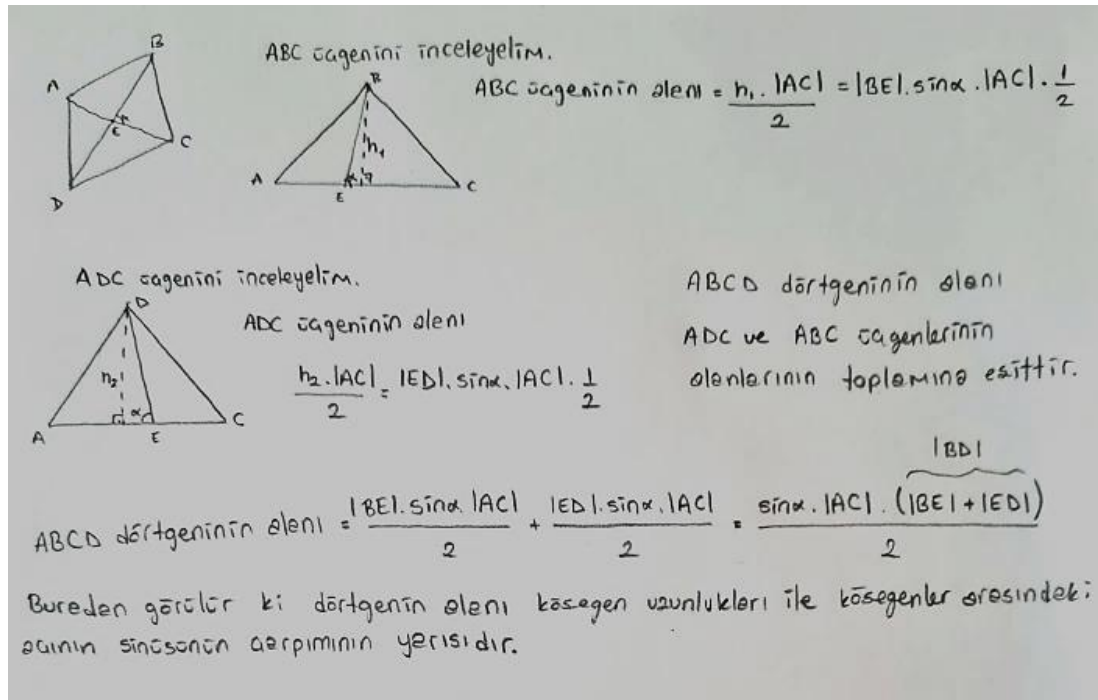 ABC üçgenini inceleyelim.
ABC üçgeninin alanı = h₁.|AC| / 2 = |BE|.sinα.|AC|.1/2
A B C D E α
A B C E h₁ α
ADC üçgenini inceleyelim.
ADC üçgeninin alanı
h₂.|AC| / 2 = |ED|.sinα.|AC|.1/2
A D C E h₂ α
ABCD dörtgeninin alanı
ADC ve ABC üçgenlerinin
alanlarının toplamına eşittir.
|BD|
ABCD dörtgeninin alanı = |BE|.sinα.|AC| / 2 + |ED|.sinα.|AC| / 2 = sinα.|AC|.(|BE|+|ED|) / 2
Buradan görülür ki dörtgenin alanı köşegen uzunlukları ile köşegenler arasındaki
açının sinüsünün çarpımının yarısıdır.